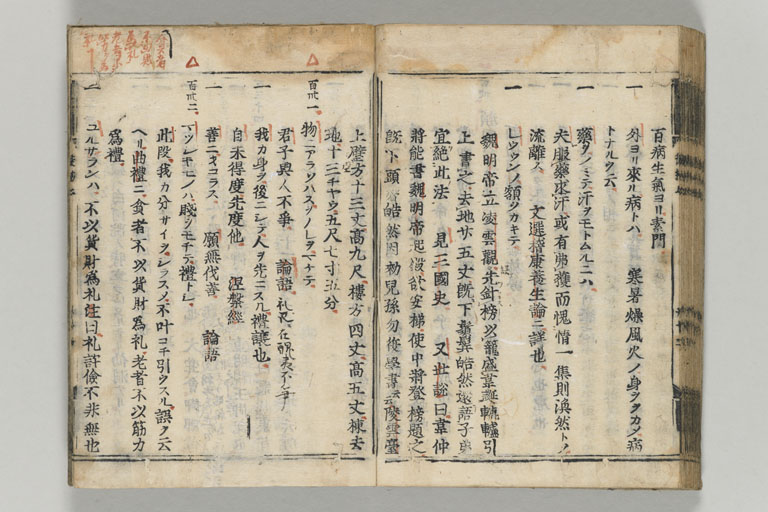 百病生氣ヨリ素問
一 外ヨリ來ル病トハ 寒暑燥風火ノ身ヲヲカス病
トナルヲ云
一 藥ヲノミテ汗ヲモトムルニハ
夫服藥求汗或有弗獲而愧情一集則渙然トメ
流離ス 文選嵇康養生論ニ詳也
一 レウウンノ額ヲカキテ
魏明帝立凌雲觀先釘榜以籠盛韋誕轆轤引
上書之去地廿五丈既下鬚鬢皓然還語子弟
宜絶此法 見三國史 又世説曰韋仲
將能書魏明帝起殿欲安榜使中將登榜題之
既下頭鬢皓然因勅兒孫勿復學書云陵雲臺
上壁方十三丈高九尺樓方四丈高五丈棟去
地十三チヤウ五尺七寸五分
百卅一 物ニアラソハスヲノレヲ
君子與人不爭 論語
一 我カ身ヲ後ニシテ人ヲ先ニスル 禮讓也
自未得度先度他 涅槃經
一 善ニホコラス 願無伐善 論語
百卅二 マツシキモノハ財ヲモチテ禮トシ
此段我カ分サイヲシラスメ不叶コヲ引ウスル誤ヲ云
ヘル曲禮ニ貧者不以貨財爲礼老者不以筋力
爲禮
一 ユルサランハ 不以貨財爲礼注曰礼許儉不非無也